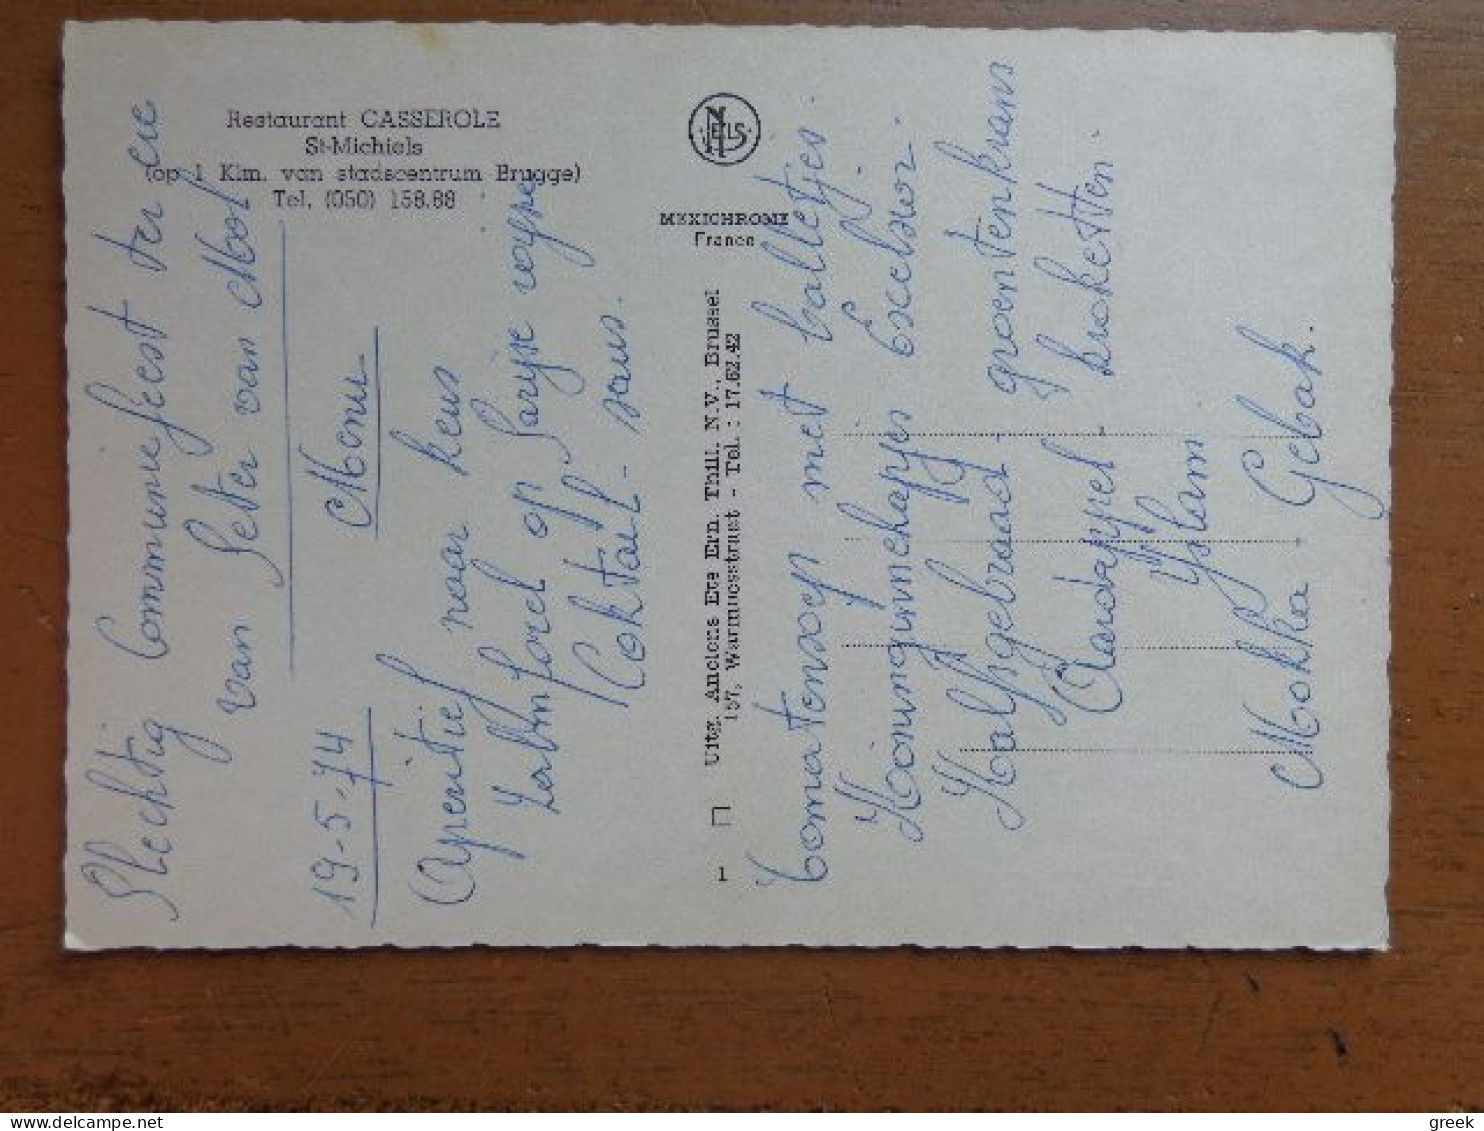 Restaurant CASSEROLE
St-Michiels
(op 1 Klm. van stadscentrum Brugge)
Tel. (050) 158.88
NELS
MEXICHROME
France
Uitg. Anciens Ets Ern. Thill. N.V., Brussel
157, Warmoesstraat - Tel. : 17.62.42
1
Plechtig Communiefeest ter ere
van Peter van Mol
19-5-74
Menu
Aperitief naar keus
Zalmforel op Parijse wijze
Koktail-saus.
Tomatensoep met balletjes.
Koninginnehapje Excelsior.
Kalfsgebraad - groentenkrans
Aardappel - kroketten.
Yslam
Mokka Gebak.
greek